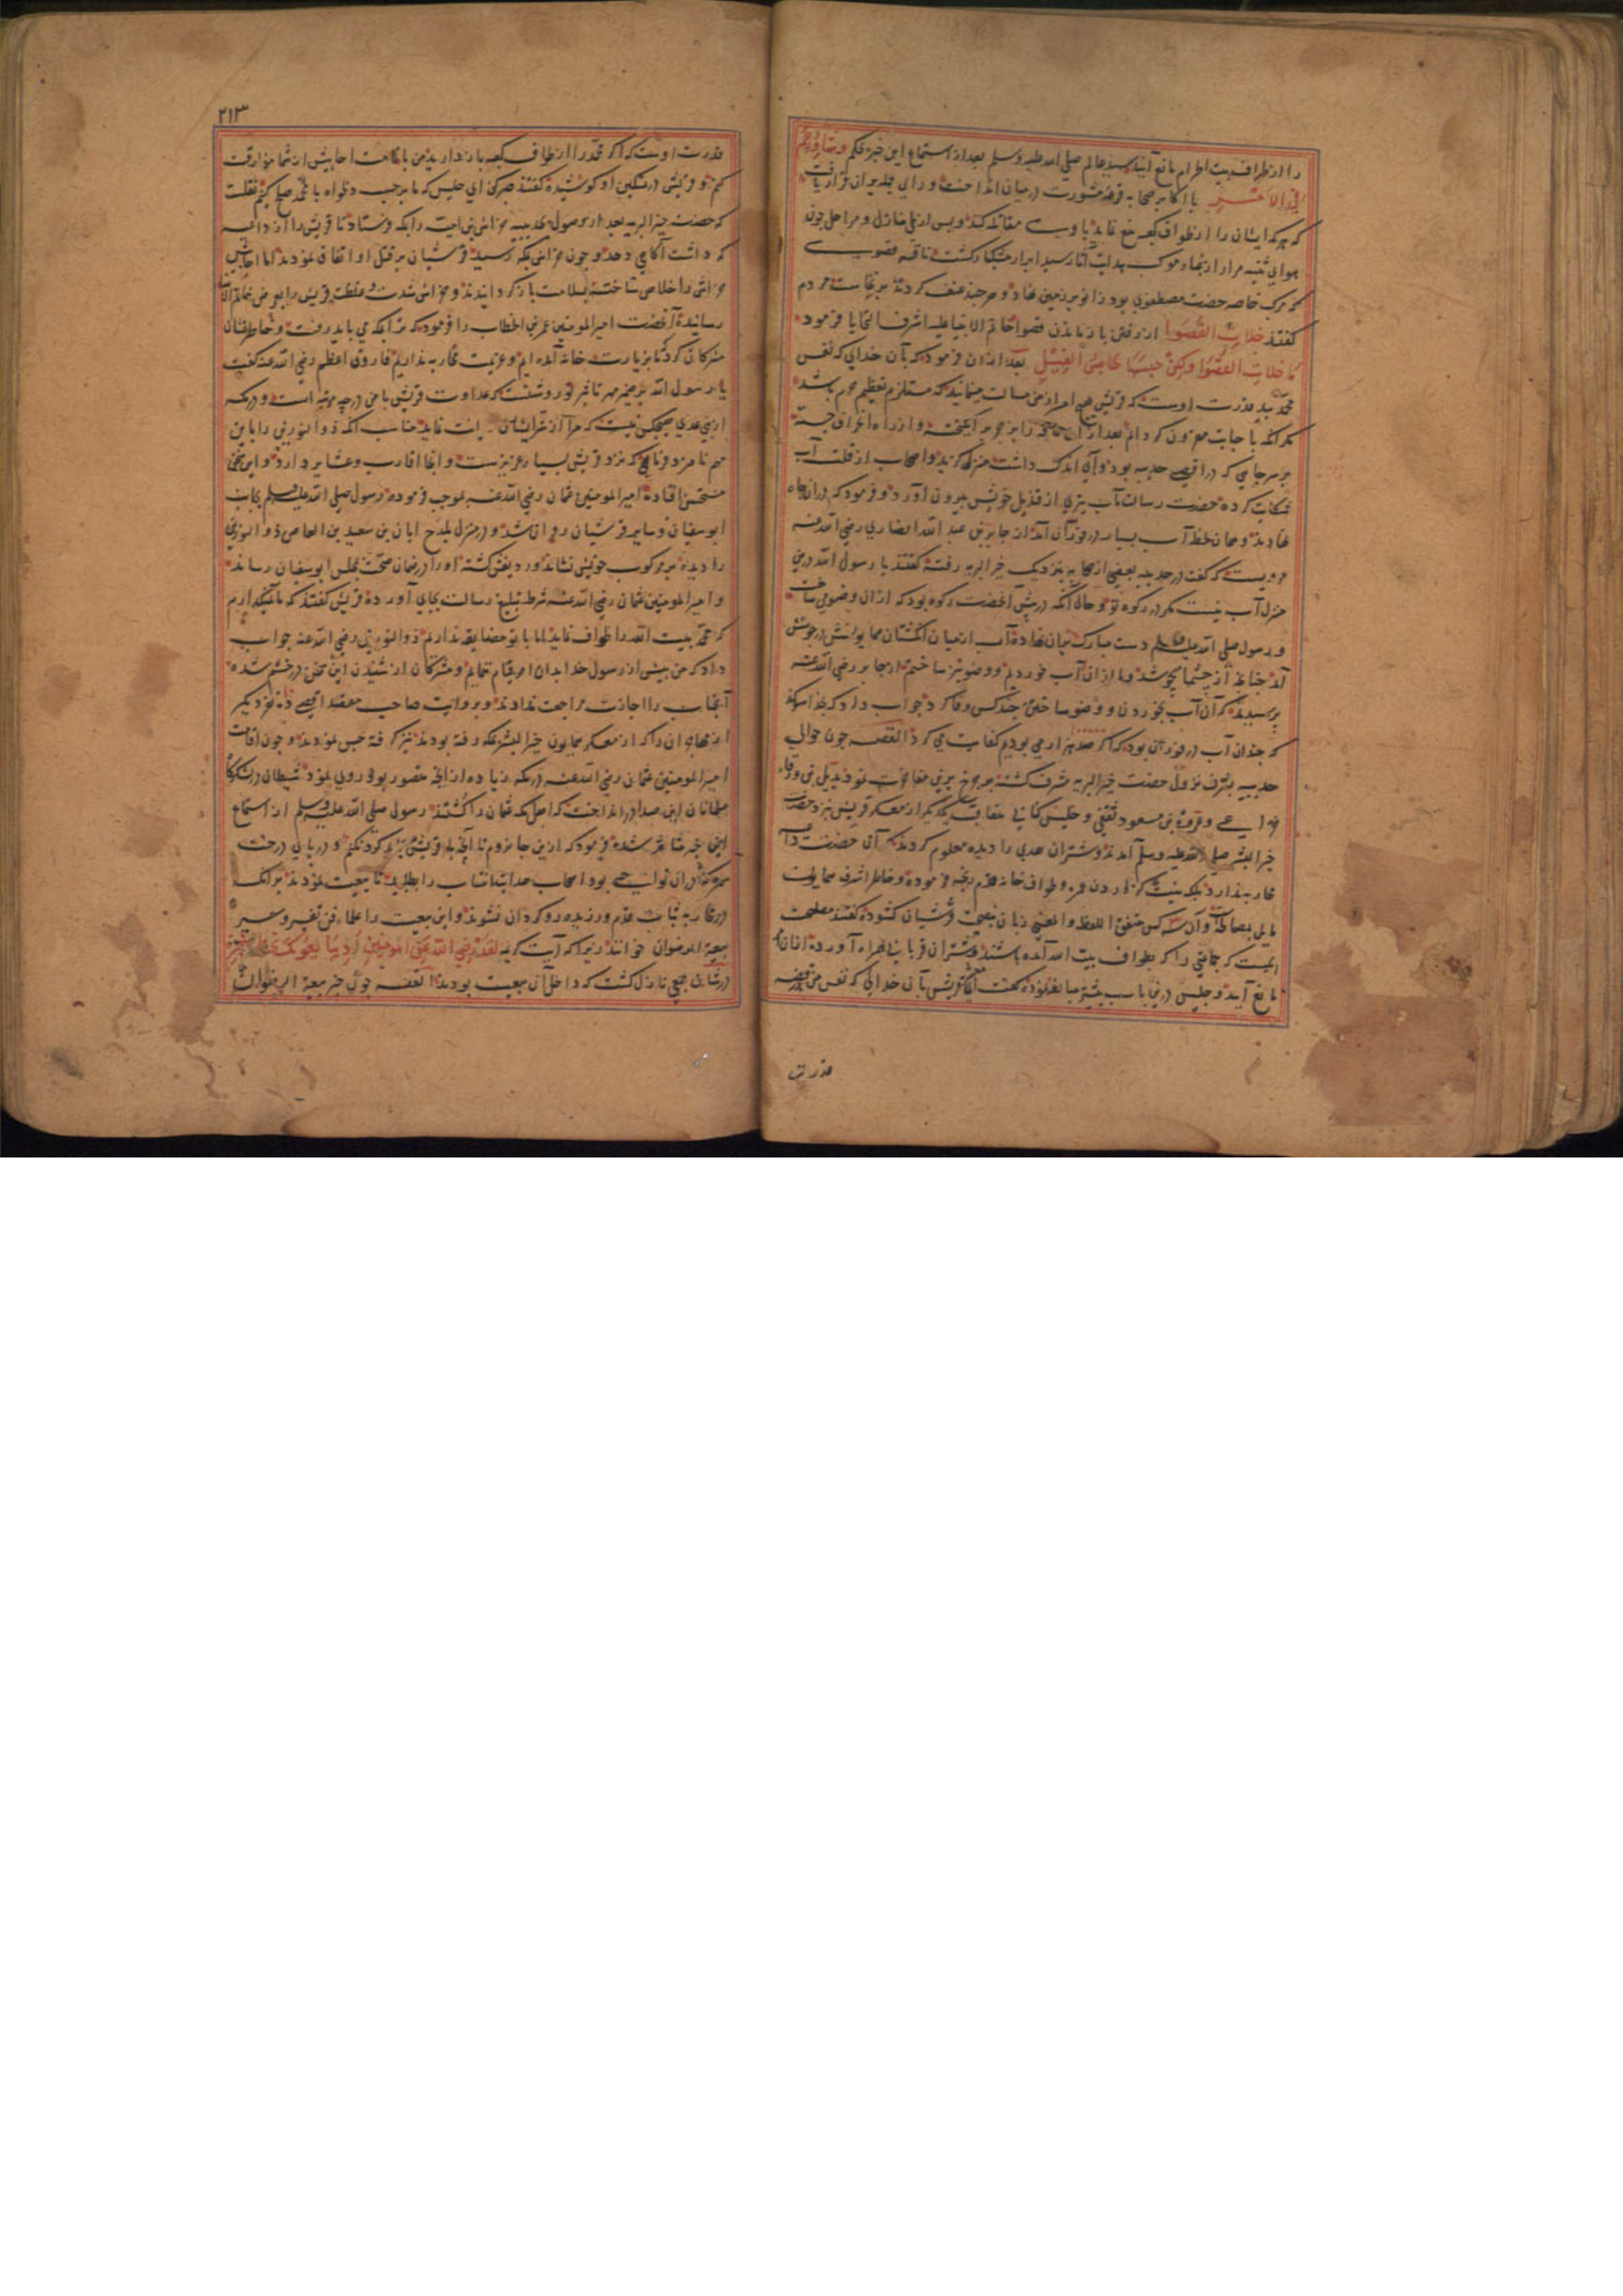 را از طواف بیت الحرام مانع آیند سید عالم صلی الله علیه وسلم بعد از استماع این خبر بحکم وشاورهم
فی الامر با اکابر صحابه قرعه مشورت در میان انداخت و رای
که هر که ایشان را از طواف کعبه منع نماید با وی مقاتله کنند و پس از طی منازل و مراحل چون
بحوالی ثنیه مرار از
که مرکب خاصه حضرت مصطفوی بود زانو بر زمین نهاد و هر چند عنف کردند بر نخاست مردم
گفتند خلات القصوا از رفتن باز ماندن قصوا خاتم الانبیا علیه اشرف التحایا فرمود
ما خلات القصوا ولکن حبسها حابس الفیل بعد ازان فرمود که بآن خدای که نفس
محمد بید قدرت اوست که قریش هیچ امر از من مسالت ننمایند که مستلزم تعظیم حرم باشد
مگر آنکه باجابت مقرون گردانم بعد ازان ناقه را بزجر بر انگیخته و از راه انحراف جسته
بر سر چاهی که در اقصی حدیبیه بود و آبی اندک داشت منزل گزید و اصحاب از قلت آب
شکایت کرده حضرت رسالت مآب تیری از خویش بیرون آورد و فرمود که دران چاه
نهادند و همان لحظه آب بسیار در فوران آمد از جابر بن عبد الله انصاری رضی الله عنه
مرویست که گفت در حدیبیه بعضی از صحابه بنزدیک خیر البریه رفته گفتند یا رسول الله درین
منزل آب نیست مگر در رکوه تو و حال آنکه در پیش آنحضرت رکوه بود که ازان وضو می ساخت
و رسول صلی الله علیه وسلم دست مبارک میان نهاده آب از میان انگشتان همایونش در جوشش
آمد چنانچه از چشمها بجوشد و ما ازان آب خوردیم و وضو نیز ساختیم از جابر رضی الله عنه
پرسیدند که آن آب بخوردن و وضو ساختن چند کس وفا کرد جواب داد که بخدا سوگند
که چندان آب در فوران بود که اگر صد هزار می بودیم کفایت می کرد القصه چون حوالی
حدیبیه بشرف نزول حضرت خیر البریه مشرف گشته بدیل بن ورقاء
خزاعی و عروة بن مسعود ثقفی و حلیس کنانی متعاقب یکدیگر از معسکر قریش نزد حضرت
خیر البشر صلی الله علیه وسلم آمدند و شتران هدی را دیده معلوم کردند که آن حضرت داعیه
محاربه ندارد بلکه بنیت گزاردن عمره و طواف خانه قدم رنجه فرموده و خاطر اشرف همایونت
مایل بمصالحه و آن سه کس متفق اللفظ والمعنی زبان بنصیحت قریشیان گشوده گفتند مصلحت
نیست که جماعتی را که بطواف بیت الله آمده باشند و شتران قربانی همراه آورده ازان
مانع آیند و حلیس درین باب بیشتر مبالغه نموده گفت ای قریش بآن خدایی که نفس من در قبضه
قدرت
٢١٣
قدرت اوست که اگر محمد را از طواف کعبه باز دارید من با تمامت احابیش از شما مفارقت
کنم و قریش در تسکین او کوشیده گفتند صبر کن ای حلیس که ما بر حسب دلخواه با محمد صلح کنیم نقلست
که حضرت خیر البریه بعد از وصول بحدیبیه خراش بن امیه را بمکه فرستاد تا قریش را از داعیه
که داشت آگاهی دهد و چون خراش بمکه رسید قریشیان بر قتل او اتفاق نمودند اما احابیش
خراش را خلاص ساخته بسلامت باز گردانیدند و خراش شدت و غلظت قریش را بعرض خاتم الانبیا
رسانیده آنحضرت امیر المومنین عمر بن الخطاب را فرمود که بمکه می باید رفت و خاطر نشان
مشرکان کرد که ما بزیارت خانه آمده ایم و عزیمت محاربه نداریم فاروق اعظم رضی الله عنه گفت
یا رسول الله بر ضمیر مهر تاثیر تو روشنست که عداوت قریش با من در چه مرتبه است و در مکه
از بنی عدی هیچکس نیست که مرا از شر ایشان نماید مناسب آنکه ذو النورین را باین
مهم نامزد فرمایی که نزد قریش بسیار عزیزست و آنجا اقارب و عشایر دارد و این سخن
مستحسن افتاده امیر المومنین عثمان رضی الله عنه بموجب فرموده رسول صلی الله علیه وسلم بجانب
ابو سفیان و سایر قریشیان روان شد و در منزل بلدح ابان بن سعید بن العاص ذو النورین
را دیده بر مرکوب خویش نشاند و ردیفش گشته او را در ضمان صحت بمجلس ابو سفیان رساند
و امیر المومنین عثمان رضی الله عنه شرط تبلیغ رسالت بجای آورده قریش گفتند که ما نمیگذاریم
که محمد بیت الله را طواف نماید اما با تو مضایقه نداریم ذو النورین رضی الله عنه جواب
داد که من پیش از رسول خدا بدان امر قیام ننمایم و مشرکان از شنیدن این سخن در خشم شده
آنجناب را اجازت مراجعت ندادند و بروایت صاحب مقصد اقصی ده نفر دیگر
از مهاجران را که از معسکر همایون خیر البشر بمکه رفته بودند نیز گرفته حبس نمودند و چون اقامت
امیر المومنین عثمان رضی الله عنه در مکه زیاده از انچه متصور بود روی نمود شیطان در لشکرگاه
مسلمانان این صدا در انداخت که اهل مکه عثمان را کشتند رسول صلی الله علیه وسلم از استماع
این خبر متاثر شده فرمود که ازین جا نروم تا آنچه با قریش باید کرد نکنم و در پای درخت
سمره که دران نواحی بود اصحاب هدایت انتساب را طلبید تا بیعت نمودند بر آنکه
در محاربه ثبات قدم ورزیده رو گردان نشوند و این بیعت را علماء فن تفسیر و سیر
بیعة الرضوان خوانند زیرا که آیت کریمه لقد رضی الله عن المومنین اذ یبایعونک تحت الشجرة
در شان جمعی نازل گشت که داخل آن بیعت بودند القصه چون خبر بیعة الرضوان